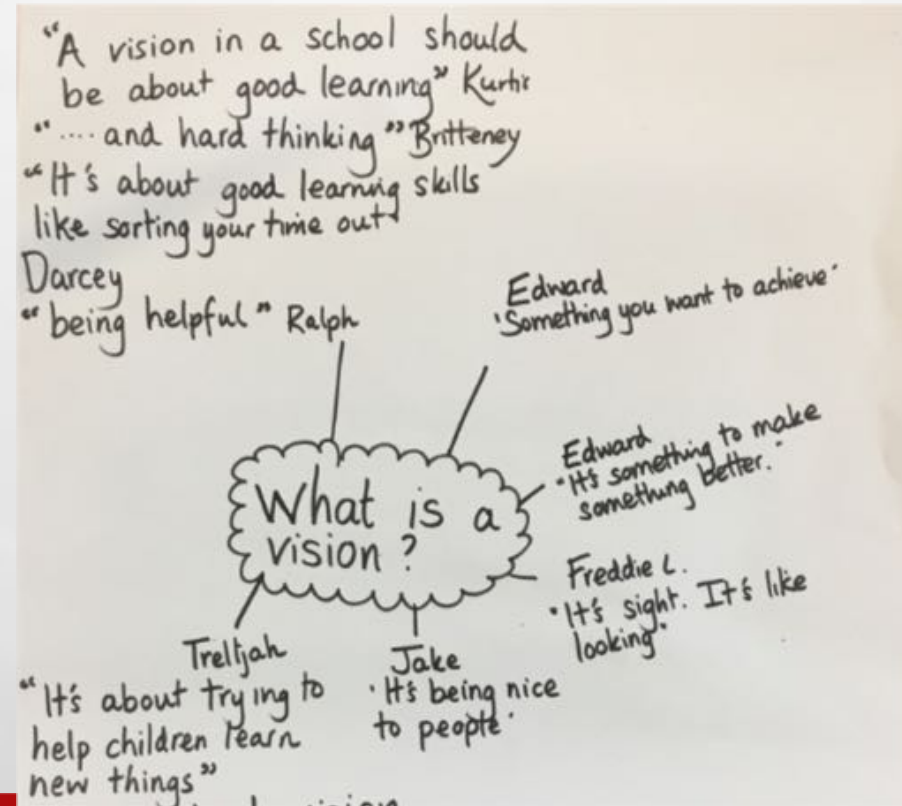 "A vision in a school should
be about good learning" Kurtis
".... and hard thinking" Britteney
"It's about good learning skills
like sorting your time out"
Darcey
"being helpful" Ralph
Edward
'Something you want to achieve'
Edward
"It's something to make
something better."
What is a
vision?
Freddie L.
"It's sight. It's like
looking"
Jake
'It's being nice
to people'
"It's about trying to
help children learn
new things"
vision